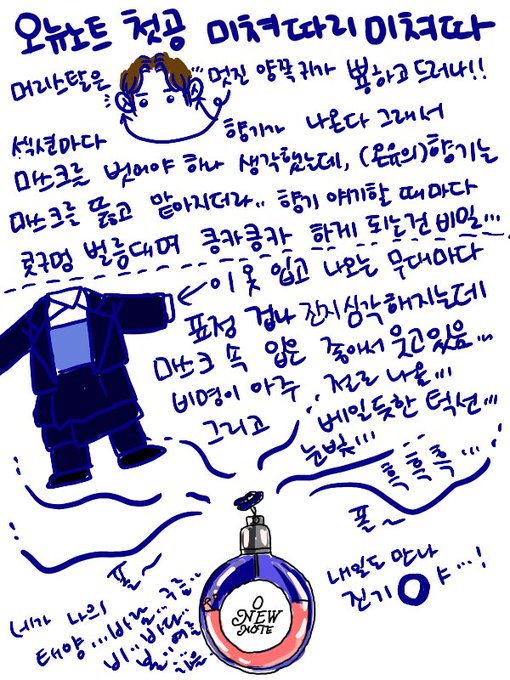 오뉴노트 첫공 미쳐따리 미쳐따
머리스탈은 멋진 양쪽귀가 뿅하고 드러나!!
섹션마다 향기가 나온다 그래서
마스크를 벗어야 하나 생각했는데, (온유의)향기는
마스크를 뚫고 맡아지더라.. 향기 얘기할 때마다
콧구멍 벌름대며 킁카킁카 하게 되는건 비밀...
이 옷 입고 나오는 무대마다
표정 겁나 진지심각해지는데
마스크 속 입은 좋아서 웃고있음...
비명이 아주 절로 나올...
그리고 베일듯한 턱선...
눈빛...
흑흑흑...
폴~
폴~
내일도 만나
진기O야...!
(네가 나의
태양...바람...구름..
비..바다..
별.. 여름..
O
NEW
NOTE